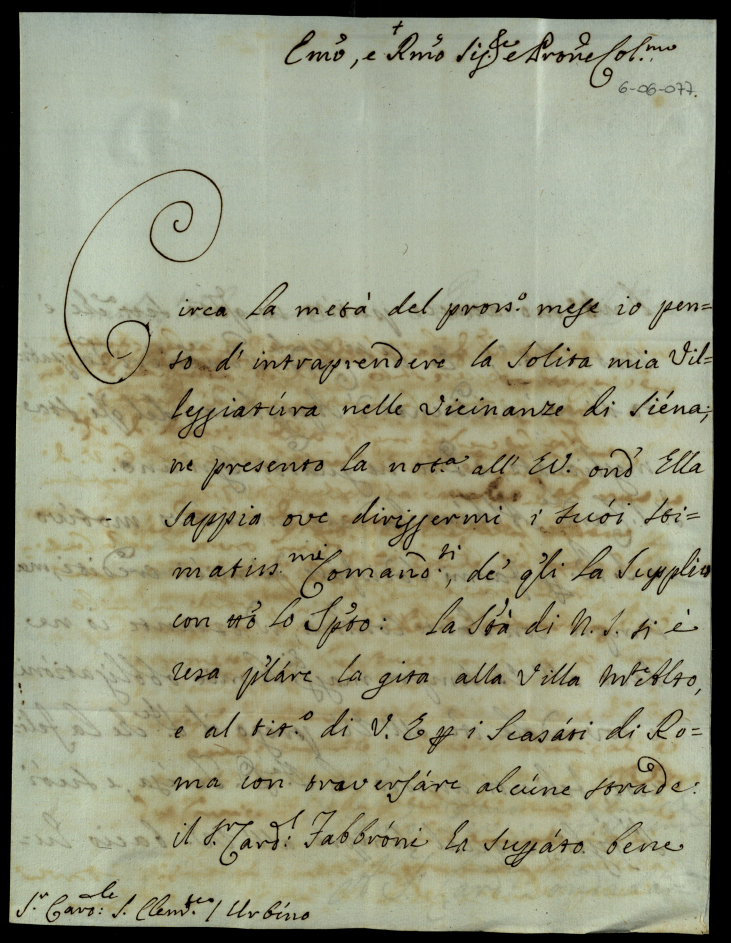 +
Emõ, e Rmõ Sig.re e Prone Col.mo
6-06-077.
Circa la metà del pross.o mese io pen=
so d' intraprendere la solita mia Vil=
leggiatúrra nelle Vicinanze di Siéna;
ne presento la not.a all' EV. ond' Ella
sappia ove diriggermi i suói sti=
matiss.mi Comand.ti, de' q'li la Supplico
con tt'o lo Sp'to: la S'tà di N. S. si è
resa la gita alla Villa M.te Alto,
e al tit.o di V. E i Scasáti di Ro=
ma con traversáre alcúne strade:
il S.r Card.l Fabbróni bene
S.r Card.le S. Clem.te / Urbíno